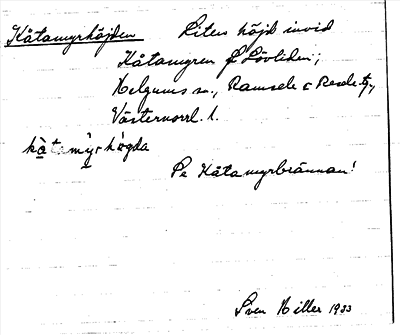 Kåtamyrhöjden Liten höjd invid
Kåtamyren f Lövliden;
Helgums sn., Ramsele o Resele tg,
Västernorrl. l.
kå̀tamy̆rhö̀gda
Se Kåtamyrbrännan!
Sven Hiller 1933